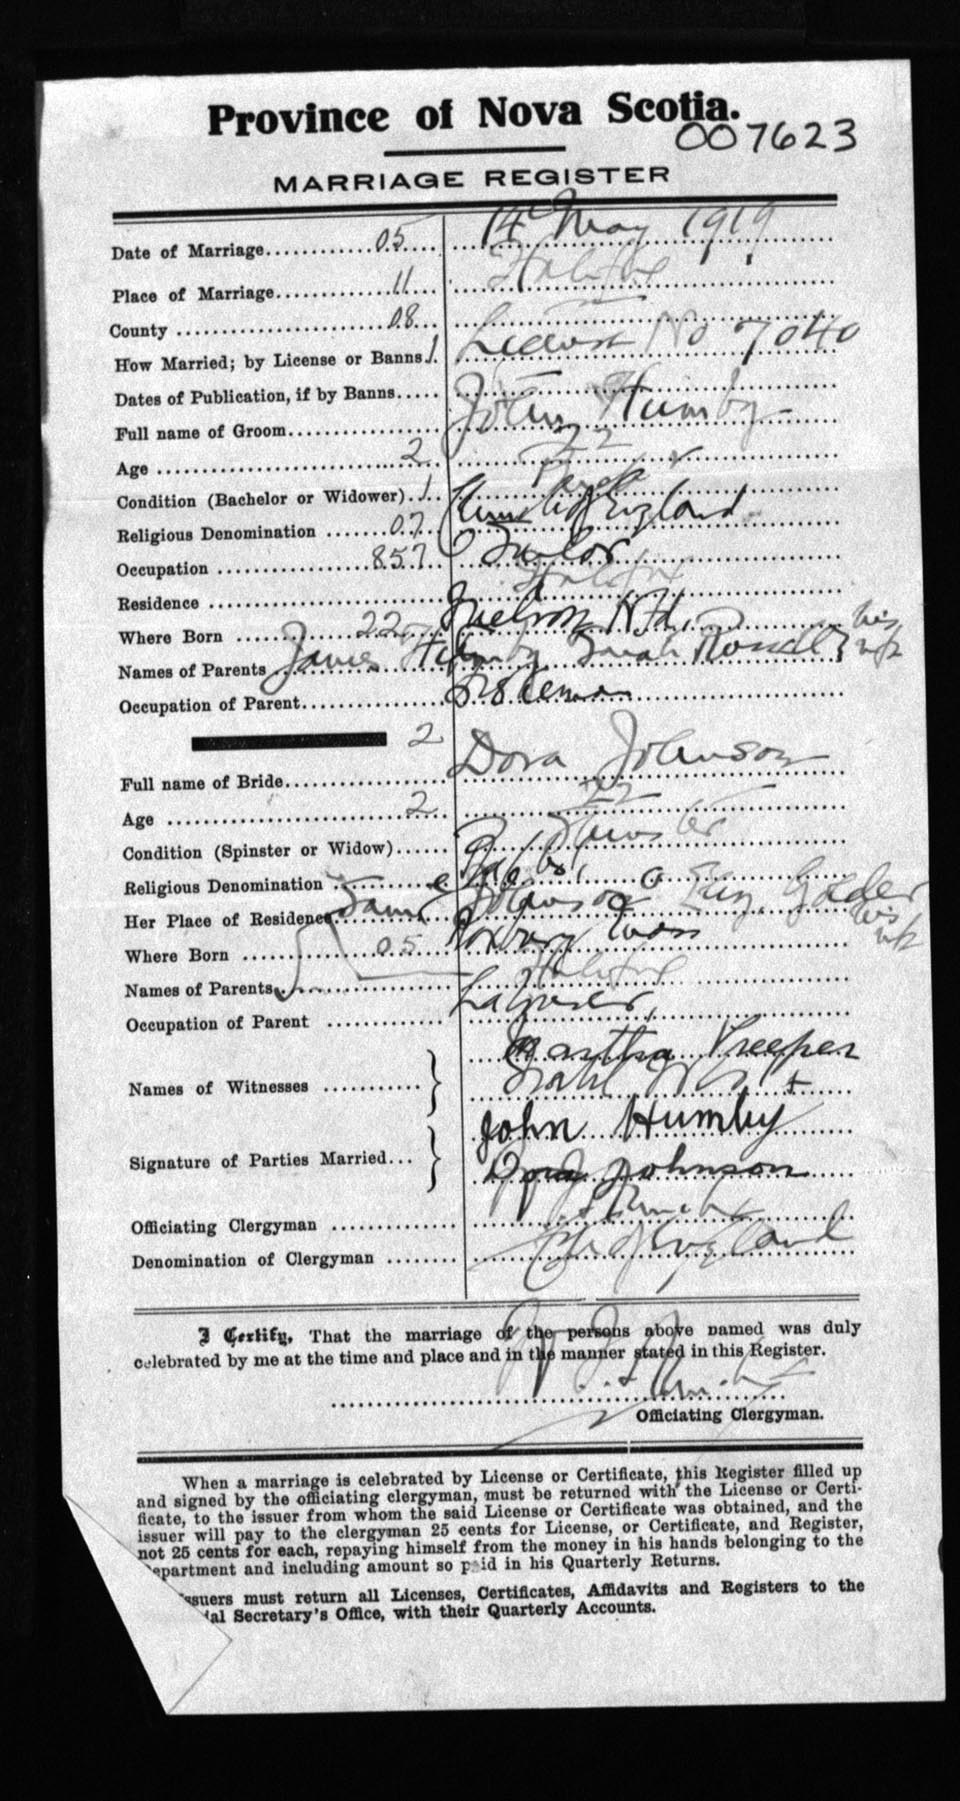 Province of Nova Scotia.
007623
MARRIAGE REGISTER
Date of Marriage 05 14 May 1919
Place of Marriage 11 Halifax
County 08
How Married; by License or Banns 1 License No 7040
Dates of Publication, if by Banns
Full name of Groom John Humby
Age 2 22
Condition (Bachelor or Widower) 1
Religious Denomination 07 Church of England
Occupation 857 Sailor
Residence Halifax
Where Born 22 Nfd. his
Names of Parents James Humby Sarah } wife
Occupation of Parent
2
Full name of Bride Dora Johnson
Age 2 22
Condition (Spinster or Widow) Spinster
Religious Denomination
Her Place of Residence Johnson his
Where Born 05 Roxbury Mass wife
Names of Parents Halifax
Occupation of Parent Laborer,
Names of Witnesses } Martha Preeper
Signature of Parties Married } John Humby
Dora Johnson
Officiating Clergyman
Denomination of Clergyman Ch of England
I Certify, That the marriage of the persons above named was duly
celebrated by me at the time and place and in the manner stated in this Register.
Officiating Clergyman.
When a marriage is celebrated by License or Certificate, this Register filled up
and signed by the officiating clergyman, must be returned with the License or Certi-
ficate, to the issuer from whom the said License or Certificate was obtained, and the
issuer will pay to the clergyman 25 cents for License, or Certificate, and Register,
not 25 cents for each, repaying himself from the money in his hands belonging to the
epartment and including amount so paid in his Quarterly Returns.
ssuers must return all Licenses, Certificates, Affidavits and Registers to the
ial Secretary's Office, with their Quarterly Accounts.